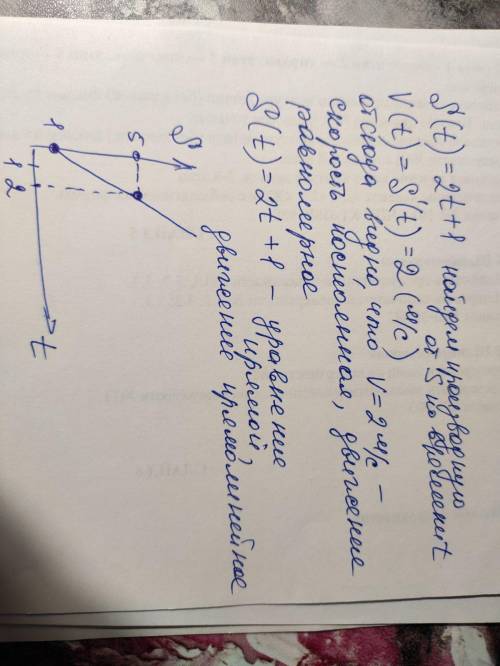 S(t) = 2t+1 найдем производную
от S по времени t
V(t) = S'(t) = 2 (м/с)
отсюда видно что V = 2 м/с –
скорость постоянная, движение
равномерное
S(t) = 2t + 1 – уравнение
прямой,
движение прямолинейное
S
5
1
1 2
t